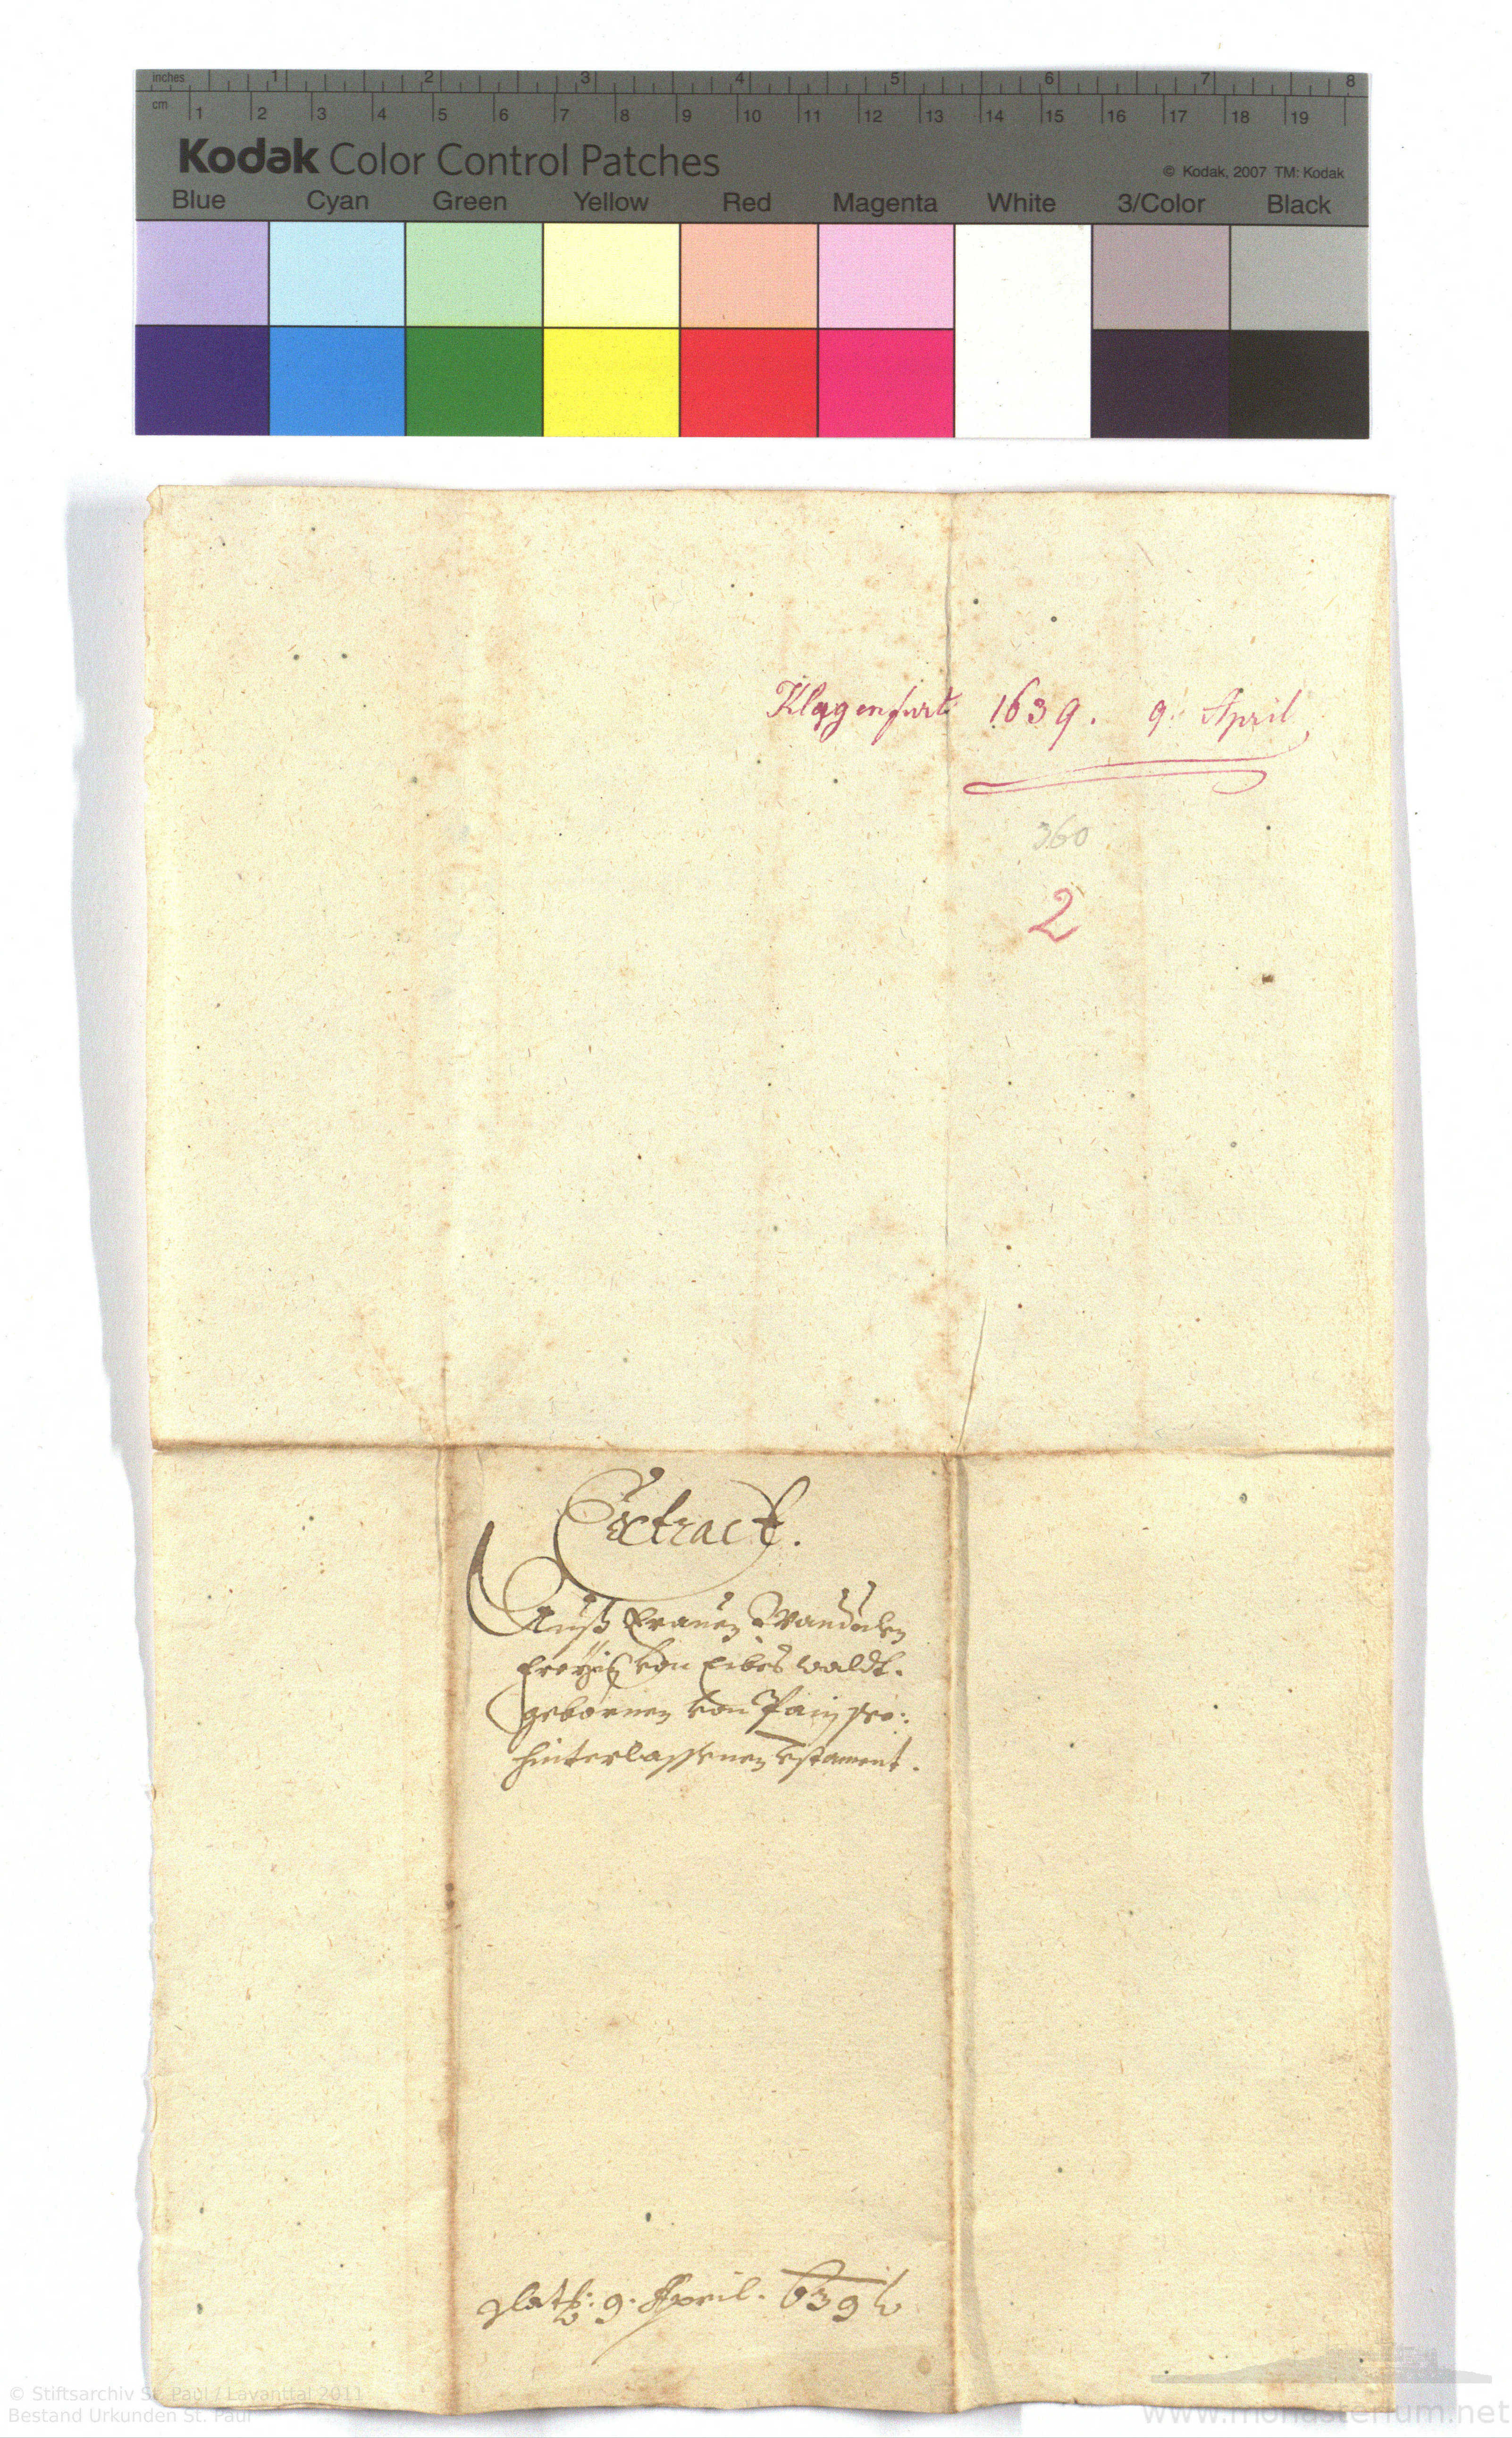 inches 1 2 3 4 5 6 7 8
cm 1 2 3 4 5 6 7 8 9 10 11 12 13 14 15 16 17 18 19
Kodak Color Control Patches
© Kodak, 2007 TM: Kodak
Blue Cyan Green Yellow Red Magenta White 3/Color Black
Klagenfurt 1639. 9. April
360
2
Extract.
Auß Frauen
von Eibeswaldt.
gebornen von
hinterlassenen testament.
9. April. 639
© Stiftsarchiv St. Paul / Lavanttal 2011
Bestand Urkunden St. Paul
www.monasterium.net